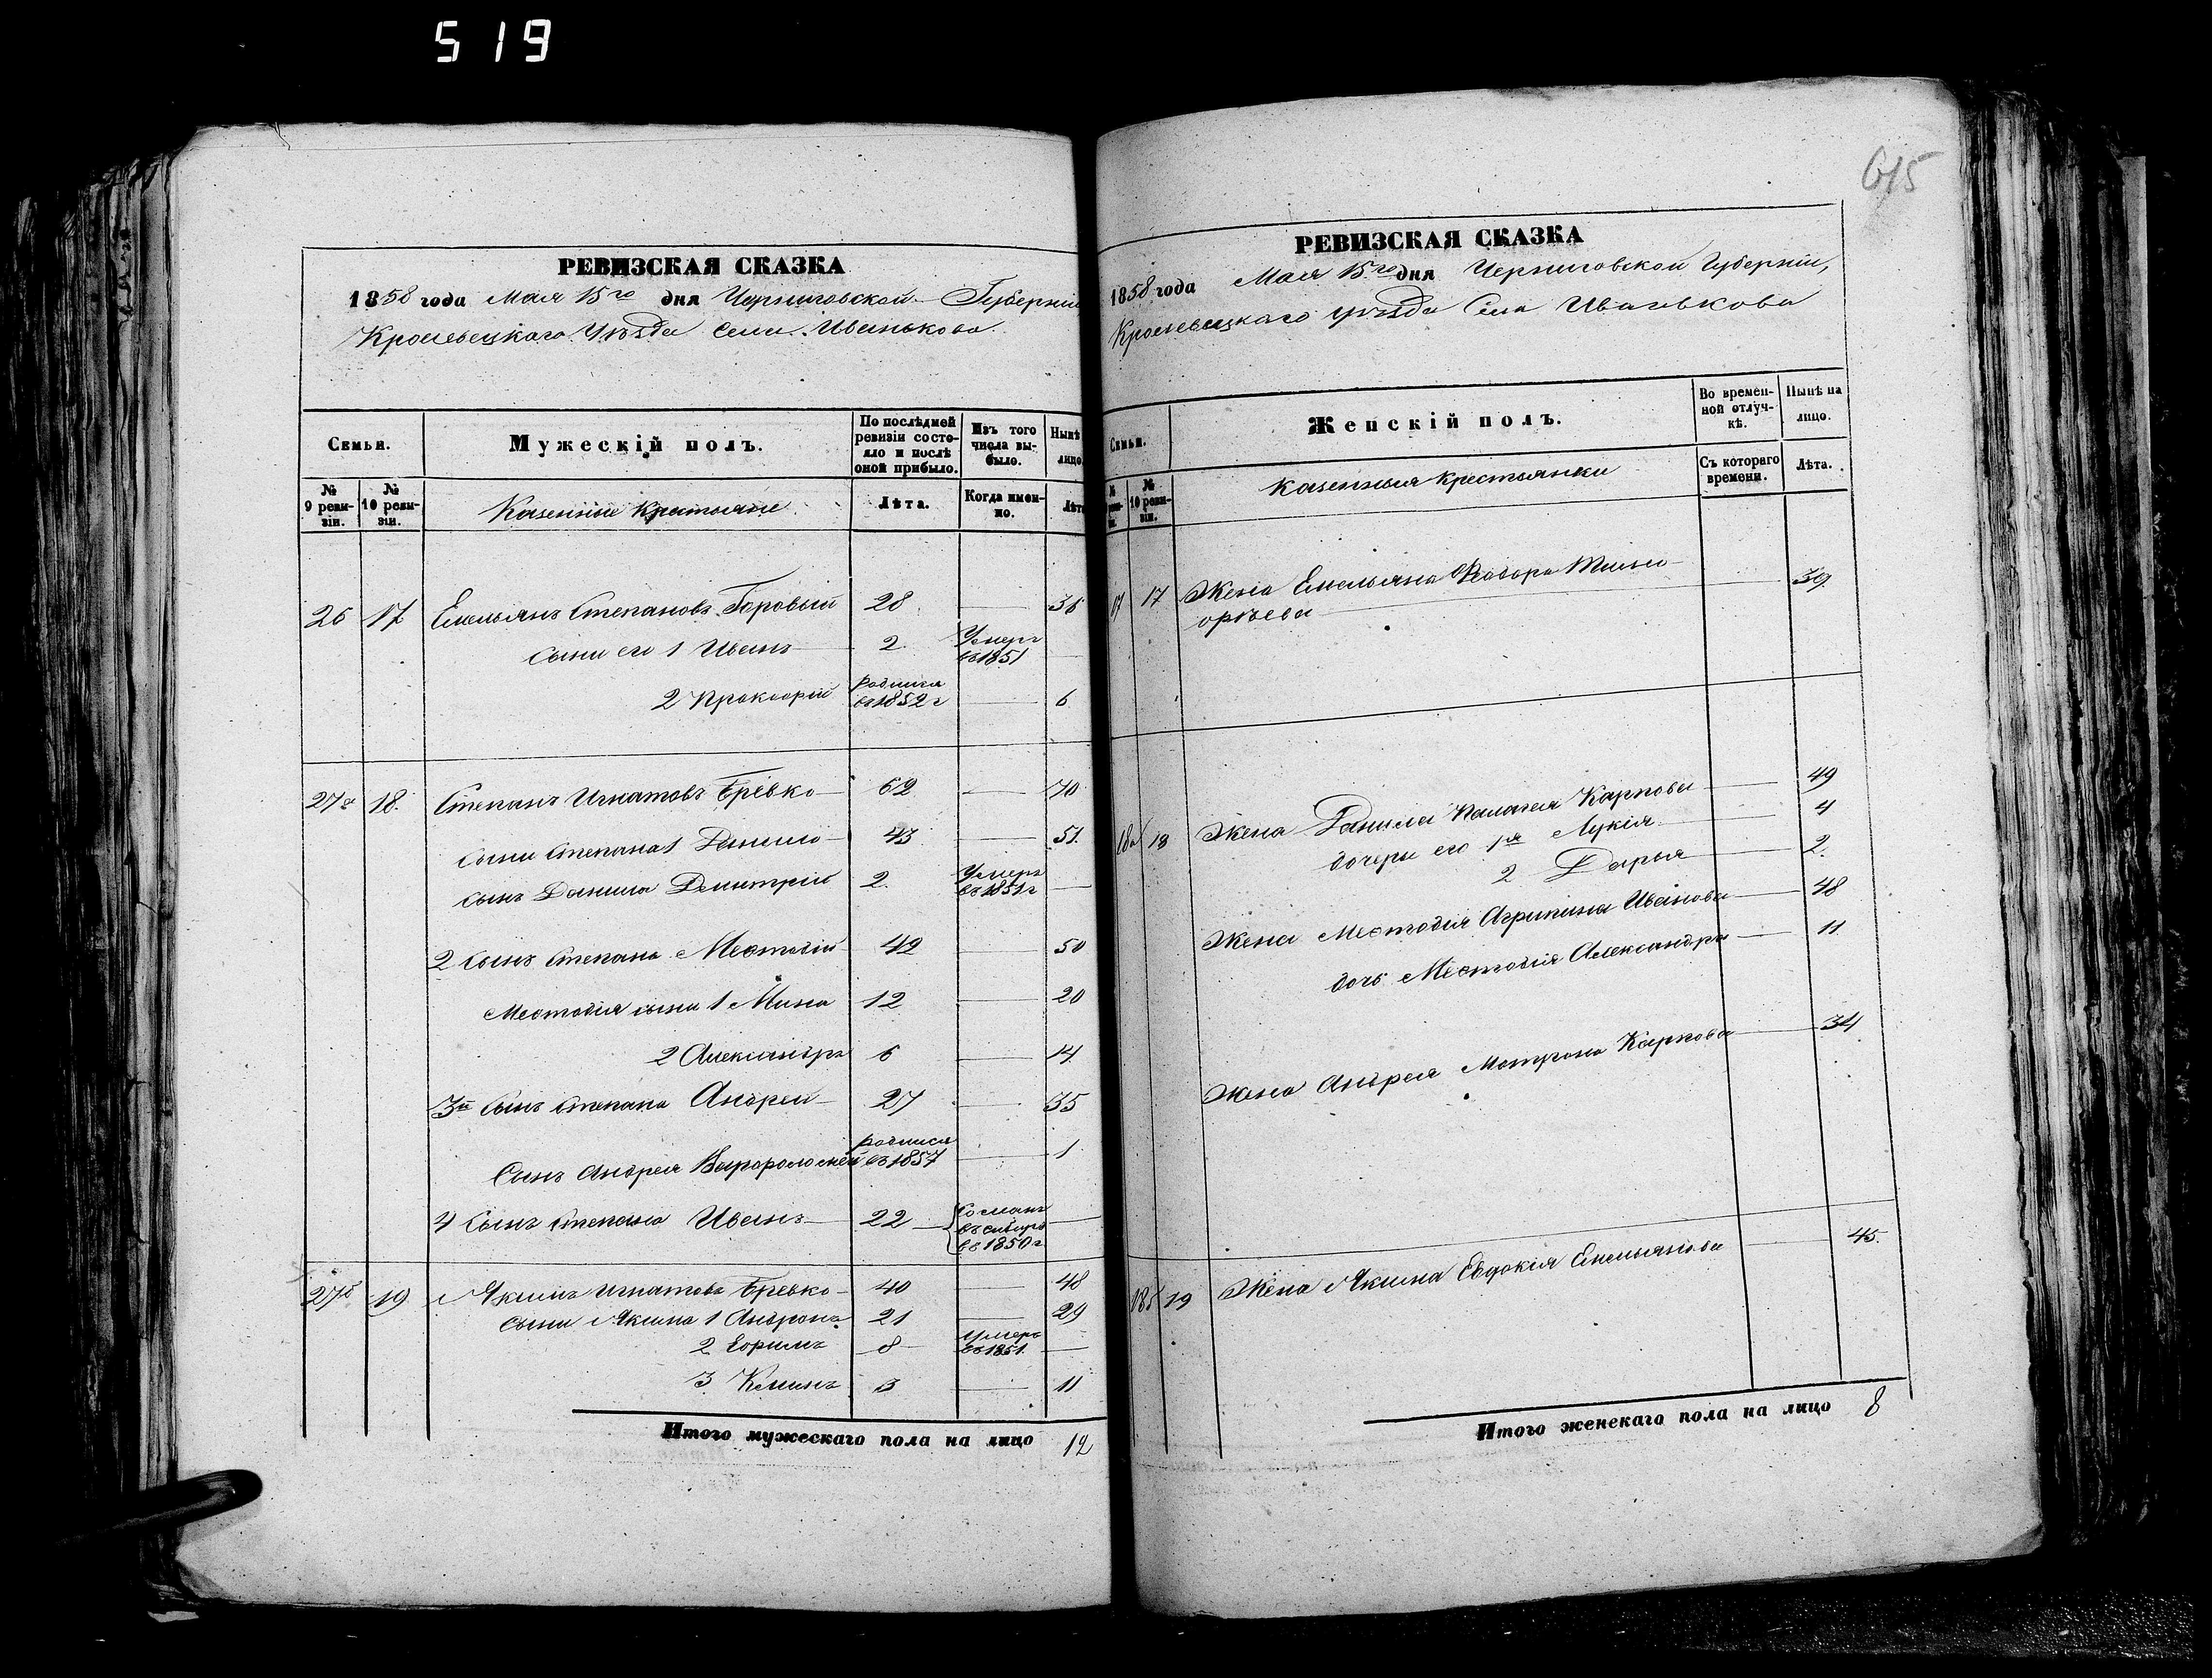 519
615
РЕВИЗСКАЯ СКАЗКА
1858 года Мая 15го дня Черниговской Губернии
Кролевецкаго Уѣзда Села Иванькова
Семьи.
Мужескій полъ.
По послѣдней ревизіи состояло и послѣ оной прибыло.
Изъ того числа выбыло.
Нынѣ лицо.
№ 9 ревизіи.
№ 10 ревизіи.
Казенные Крестьяне
Лѣта.
Когда именно.
Лѣта
26 17 Емельянъ Степановъ Боровый 28 36
сыны его 1 Иванъ 2 Умеръ въ 1851
2 Прокофій родился въ 1852 г 6
27а 18. Степанъ Игнатовъ Бревко 62 70
сыны Степана 1 Данило 43 51.
сынъ Данила Димитрій 2. Умеръ въ 1851 г
2 сынъ Степана Мефтодій 42 50
Мефтодія сыны 1 Мина 12 20
2 Александръ 6 14
3й сынъ Степана Андрей 27 35
Сынъ Андрея Варфоломей родился въ 1857 1
4 сынъ Степана Иванъ 22 Сосланъ въ сибирь въ 1850 г
27б 19 Якимъ Игнатовъ Бревко 40 48
сыны Якима 1 Андронъ 21 29
2 Ефимъ 8 умеръ въ 1851.
3 Климъ 3 11
Итого мужескаго пола на лицо 12
РЕВИЗСКАЯ СКАЗКА
1858 года Мая 15го дня Черниговской Губерніи,
Кролевецкаго уѣзда Села Иванькова
Семьи.
Женскій полъ.
Во временной отлучкѣ.
Нынѣ на лицо.
№ 10 ревизіи.
Казенныя крестьянки
Съ котораго времени.
Лѣта.
17 Жена Емельяна Федора Тимо- 39
фѣева
18а 18 Жена Данила Палагея Карпова 49
дочери его 1я Лукія 4
2 Дарья 2.
Жена Мефтодія Агрипина Иванова 48
дочь Мефтодія Александра 11
Жена Андрея Мотрона Карпова 34
18б 19 Жена Якима Евдокія Емельянова 45.
Итого женскаго пола на лицо 8